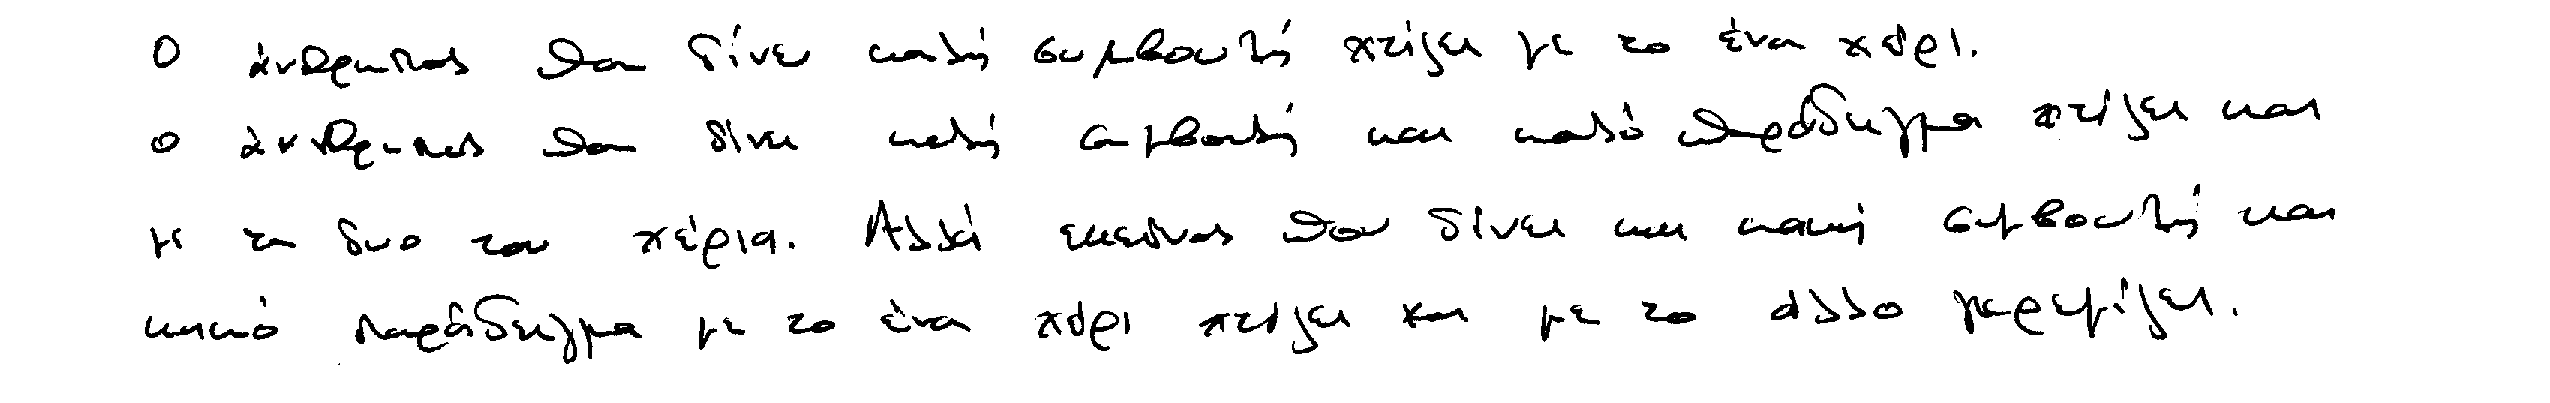 Ο άνθρωπος που δίνει καλή συμβουλή χτίζει με το ένα χέρι.
Ο άνθρωπος που δίνει καλή συμβουλή και καλό παράδειγμα χτίζει και
με τα δυο του χέρια. Αλλά εκείνος που δίνει και κακή συμβουλή και
κακό παράδειγμα με το ένα χέρι χτίζει και με το άλλο γκρεμίζει.